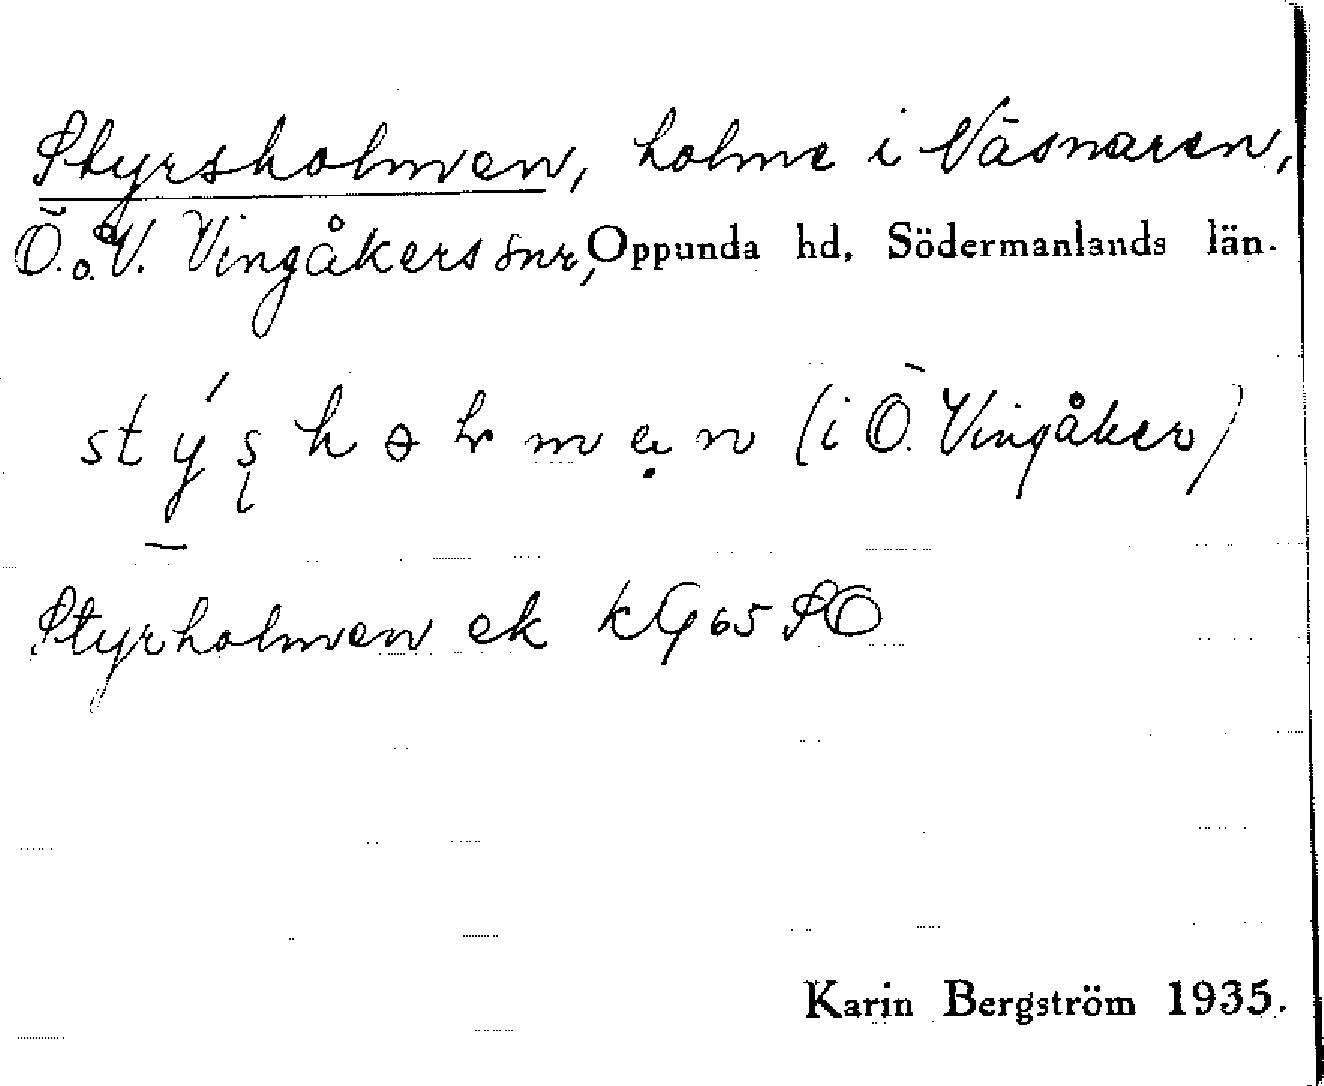 Styrsholmen, holme i Väsnaren,
Ö. o. V. Vingåkers snr, Oppunda hd, Södermanlands län.
(i Ö. Vingåker)
Styrholmen ek kG 65 SO
Karin Bergström 1935.